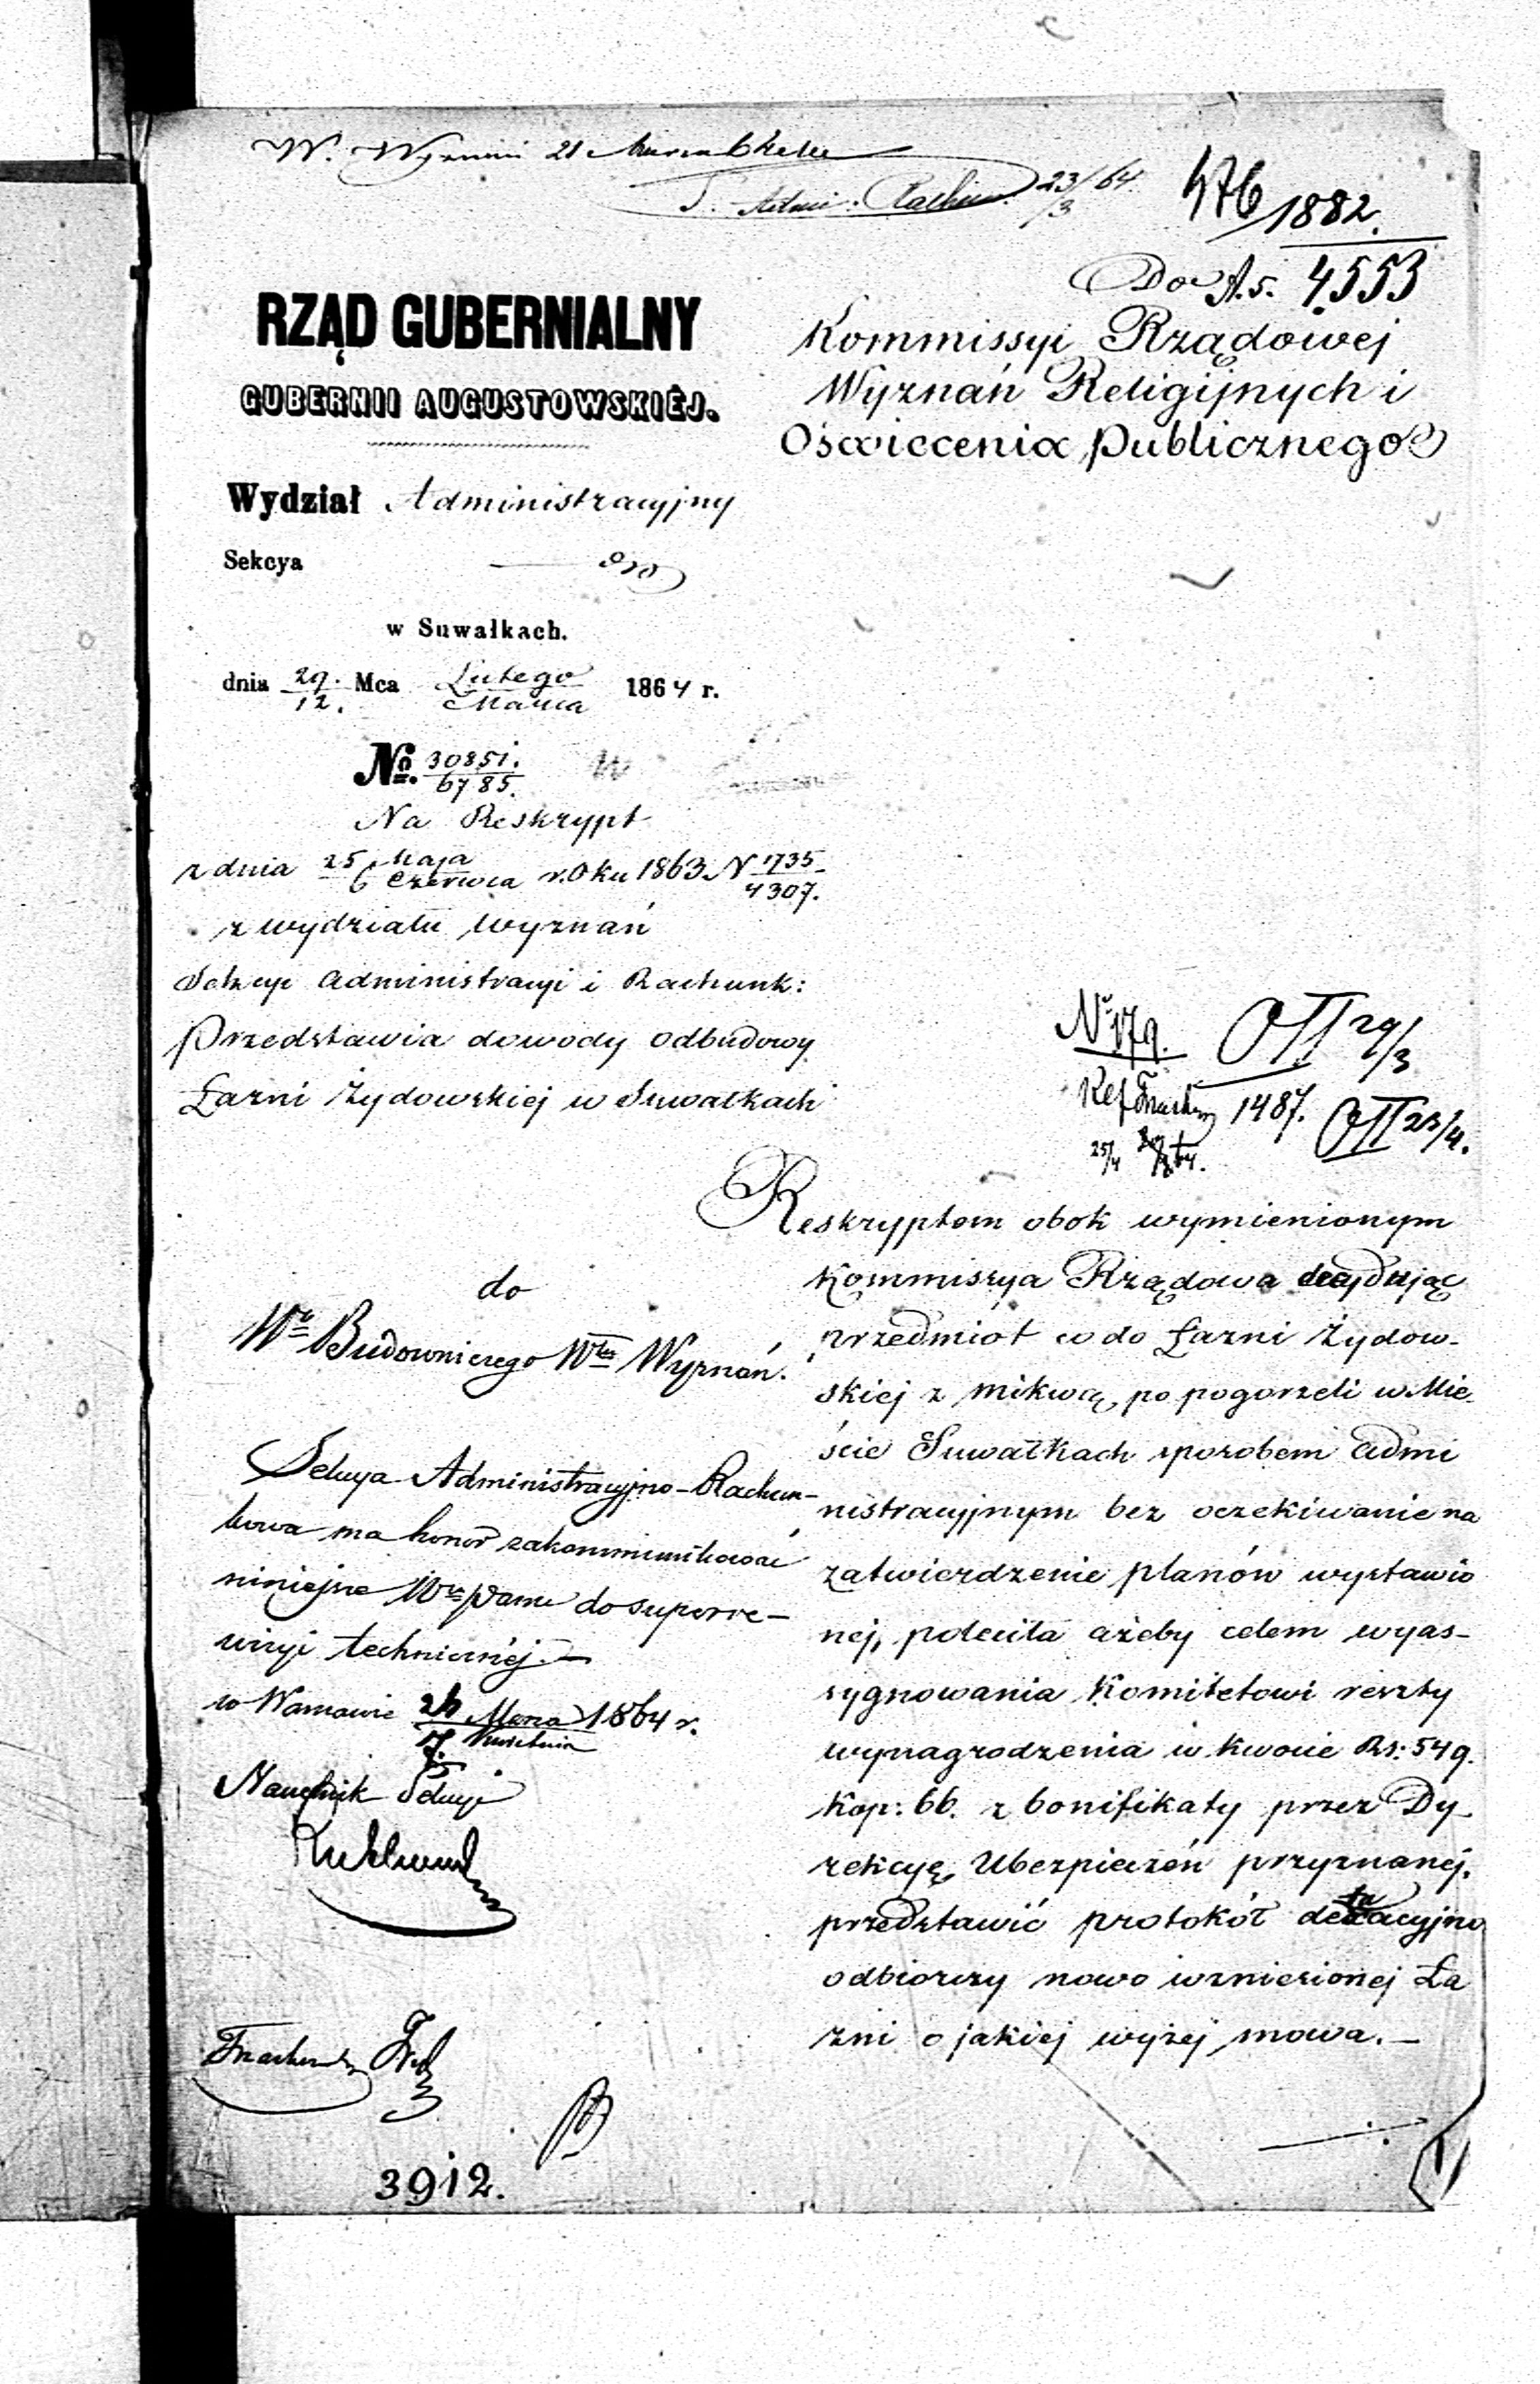 W. Wyznań 21 Marca
S. Admi. Rachun. 23/3 64.
476/1882.
Do A.5. 4553
Kommissyi Rządowej
Wyznań Religijnych i
Oświecenia Publicznego
RZĄD GUBERNIALNY
GUBERNII AUGUSTOWSKIÉJ.
Wydział Administracyjny
Sekcya
w Suwałkach.
dnia 29./12. Mca Lutego/Marca 1864 r.
No. 30851./6785.
Na Reskrypt
z dnia 25 Maja/6 Czerwca roku 1863 N 1735/4307.
z wydziału Wyznań
Sekcyi Administracyi i Rachunk:
Przedstawia dowody odbudowy
Łazni Żydowskiej w Suwałkach
N 179.
29/3
Ref 1487. 23/4.
25/4 64.
Reskryptem obok wymienionym
Kommissya Rządowa decydując
przedmiot co do Łazni Żydow-
skiej z mikwą, po pogorzeli w Mie-
ście Suwałkach sposobem admi
nistracyjnym bez oczekiwanie na
zatwierdzenie planów wystawio
nej, poleciła ażeby celem wyas-
sygnowania Komitetowi reszty
wynagrodzenia w kwocie Rs: 549.
Kop: 66. z bonifikaty przez Dy-
rekcyę Ubezpieczeń przyznanej,
przedstawić protokół detaxacyjno
odbiorczy nowo wzniesionej Ła
zni o jakiej wyżej mowa.—
do
Wo Budowniczego Włu Wyznań.
Sekcya Administracyjno-Rachun-
kowa ma honor zakommunikować
niniejsze Wu Panu do superre-
wizyi technicznéj.—
w Warszawie 26 Marca/7. Kwietnia 1864 r.
Naczelnik Sekcyi
3912.